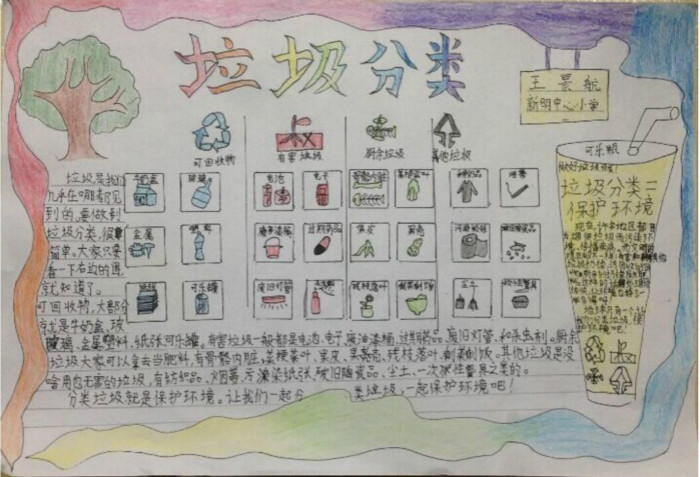 垃圾分类
王景航
新明中心小学
可回收物
有害垃圾
厨余垃圾
其他垃圾
牛奶盒
玻璃
电池
电子
骨骼内脏
菜梗菜叶
纺织品
烟蒂
金属
塑料
废油漆桶
过期药品
果皮
果壳
污染纸张
破旧陶瓷品
纸张
可乐罐
废旧灯管
杀虫剂
残枝落叶
剩菜剩饭
尘土
一次性餐具
垃圾是我们
几乎在哪都见
到的。要做到
垃圾分类,很
简单。大家只要
看一下右边的图
就知道了。
可回收物,大部分
就是牛奶盒、玻
璃、金属、塑料、纸张、可乐罐。有害垃圾一般都是电池、电子、废油漆桶、过期药品、废旧灯管、和杀虫剂。厨余
垃圾大家可以拿去当肥料,有骨骼内脏、菜梗菜叶、果皮、果壳、残枝落叶、剩菜剩饭。其他垃圾是没
啥用也无害的垃圾,有纺织品、烟蒂、污染纸张、破旧陶瓷品、尘土、一次性餐具之类的。
分类垃圾就是保护环境。让我们一起分类垃圾,一起保护环境吧!
可乐瓶
做好垃圾分类!
垃圾分类=
保护环境